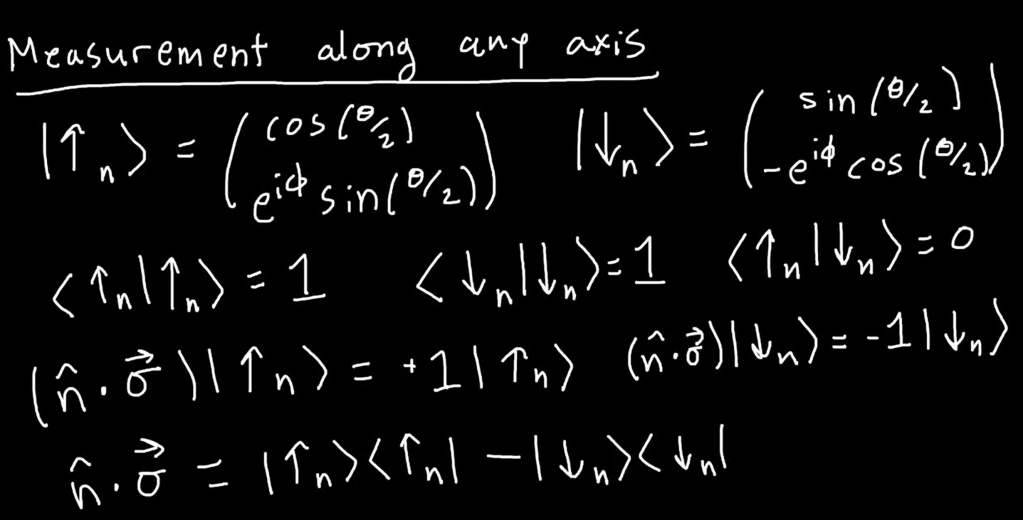 Measurement along any axis
|↑ₙ⟩ = (cos(θ/2) e^{iϕ} sin(θ/2)) |↓ₙ⟩ = (sin(θ/2) -e^{iϕ} cos(θ/2))
⟨↑ₙ|↑ₙ⟩ = 1 ⟨↓ₙ|↓ₙ⟩ = 1 ⟨↑ₙ|↓ₙ⟩ = 0
(n̂·σ⃗)|↑ₙ⟩ = +1|↑ₙ⟩ (n̂·σ⃗)|↓ₙ⟩ = -1|↓ₙ⟩
n̂·σ⃗ = |↑ₙ⟩⟨↑ₙ| - |↓ₙ⟩⟨↓ₙ|